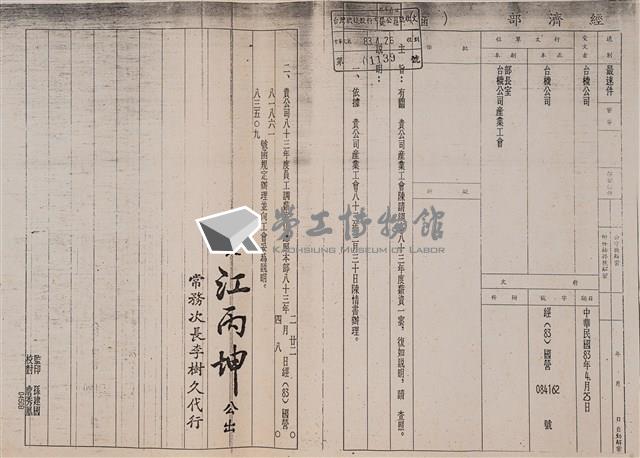 經濟部（函）
速別
最速件
受文者
台機公司
行文單位
正本
台機公司
副本
部長室
台機公司產業工會
發文
日期
中華民國83年4月25日
字號
經(83)國營 084162 號
附件
批示
擬辦
83.4.26
第 01139 號
主旨：有關 貴公司產業工會陳請調
八十三年度薪資一案，復如說明，請 查照。
說明：
一、依據 貴公司產業工會八十
三月三十日陳情書辦理。
二、貴公司八十三年度員工調
本部八十三年
二月
四
廿二
八
日經(83)國營
〇八一八六一
〇八三五〇九
號函規定辦理並向工會妥為說明。
江丙坤 公出
常務次長李樹久代行
監印 孫建國
校對
勞工博物館
KAOHSIUNG MUSEUM OF LABOR